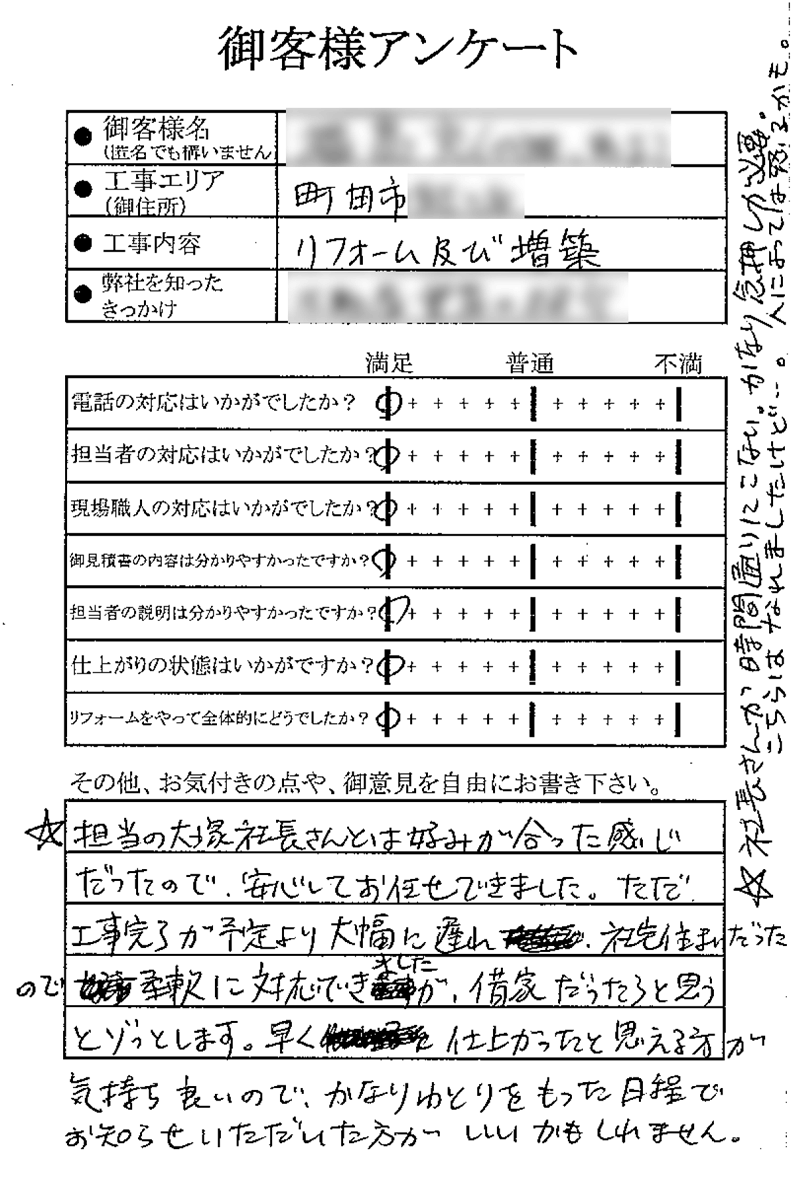 御客様アンケート
● 御客様名
(匿名でも構いません)
● 工事エリア
(御住所)
町田市
● 工事内容
リフォーム及び増築
● 弊社を知った
きっかけ
満足 普通 不満
電話の対応はいかがでしたか?
担当者の対応はいかがでしたか?
現場職人の対応はいかがでしたか?
御見積書の内容は分かりやすかったですか?
担当者の説明は分かりやすかったですか?
仕上がりの状態はいかがですか?
リフォームをやって全体的にどうでしたか?
その他、お気付きの点や、御意見を自由にお書き下さい。
☆担当の大塚社長さんとは好みが合った感じ
だったので、安心してお任せできました。ただ
工事完了が予定より大幅に遅れ、社宅住まいだった
ので柔軟に対応できましたが、借家だったらと思う
とゾっとします。早く仕上がったと思える方が
気持ち良いので、かなりゆとりをもった日程で
お知らせいただいた方がいいかもしれません。
☆社長さんが時間通りにこない。かなり念押しが必要。
こちらはなれましたけど…。人によっては怒るかも。